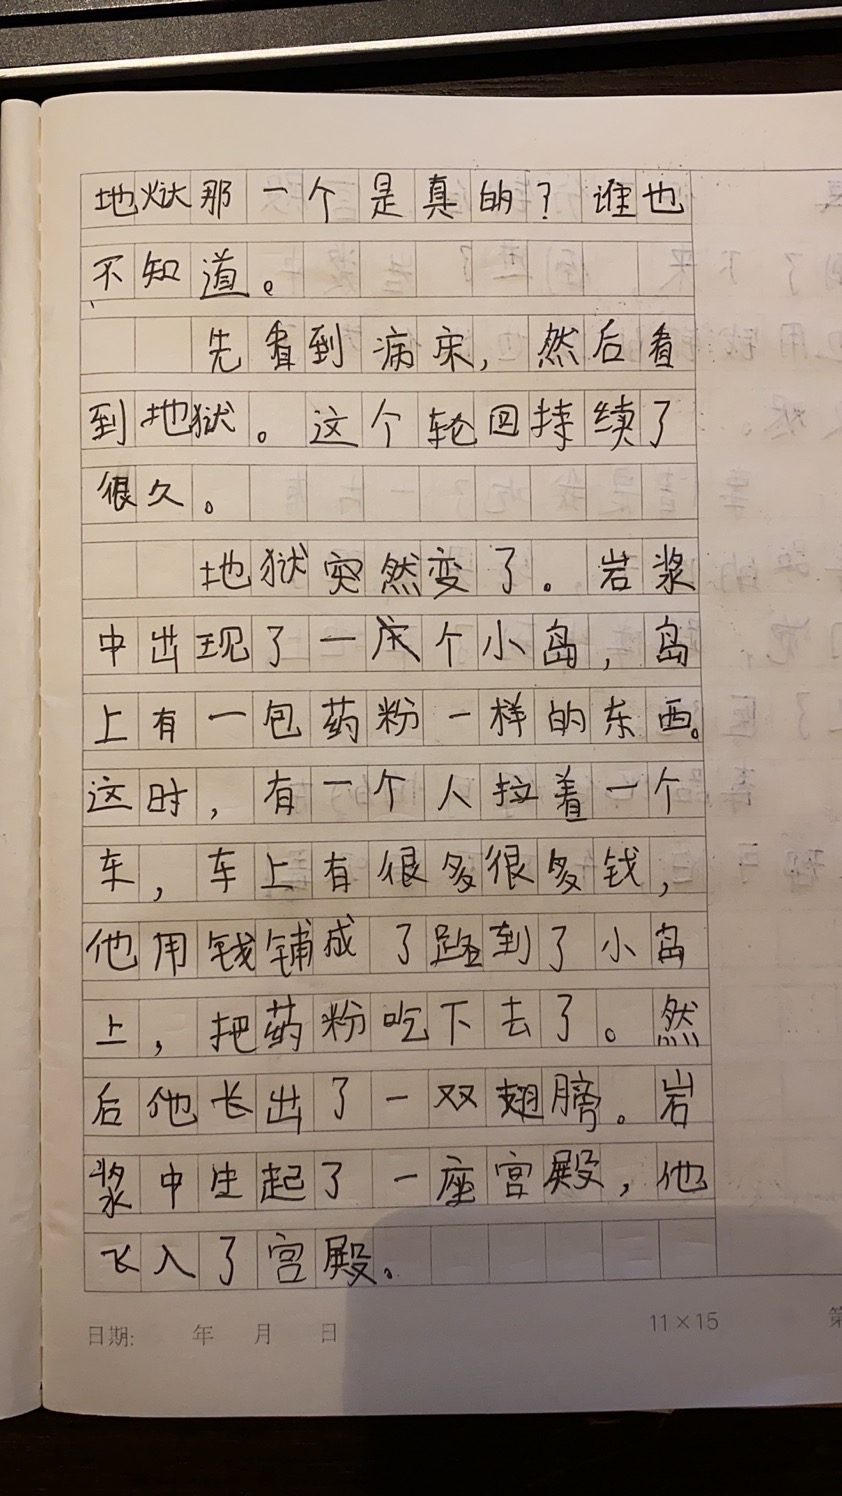 地狱那一个是真的？谁也
不知道。
先看到病床，然后看
到地狱。这个轮回持续了
很久。
地狱突然变了。岩浆
中出现了一个小岛，岛
上有一包药粉一样的东西。
这时，有一个人拉着一个
车，车上有很多很多钱，
他用钱铺成了路到了小岛
上，把药粉吃下去了。然
后他长出了一双翅膀。岩
浆中生起了一座宫殿，他
飞入了宫殿。
日期: 年 月 日 11×15 第